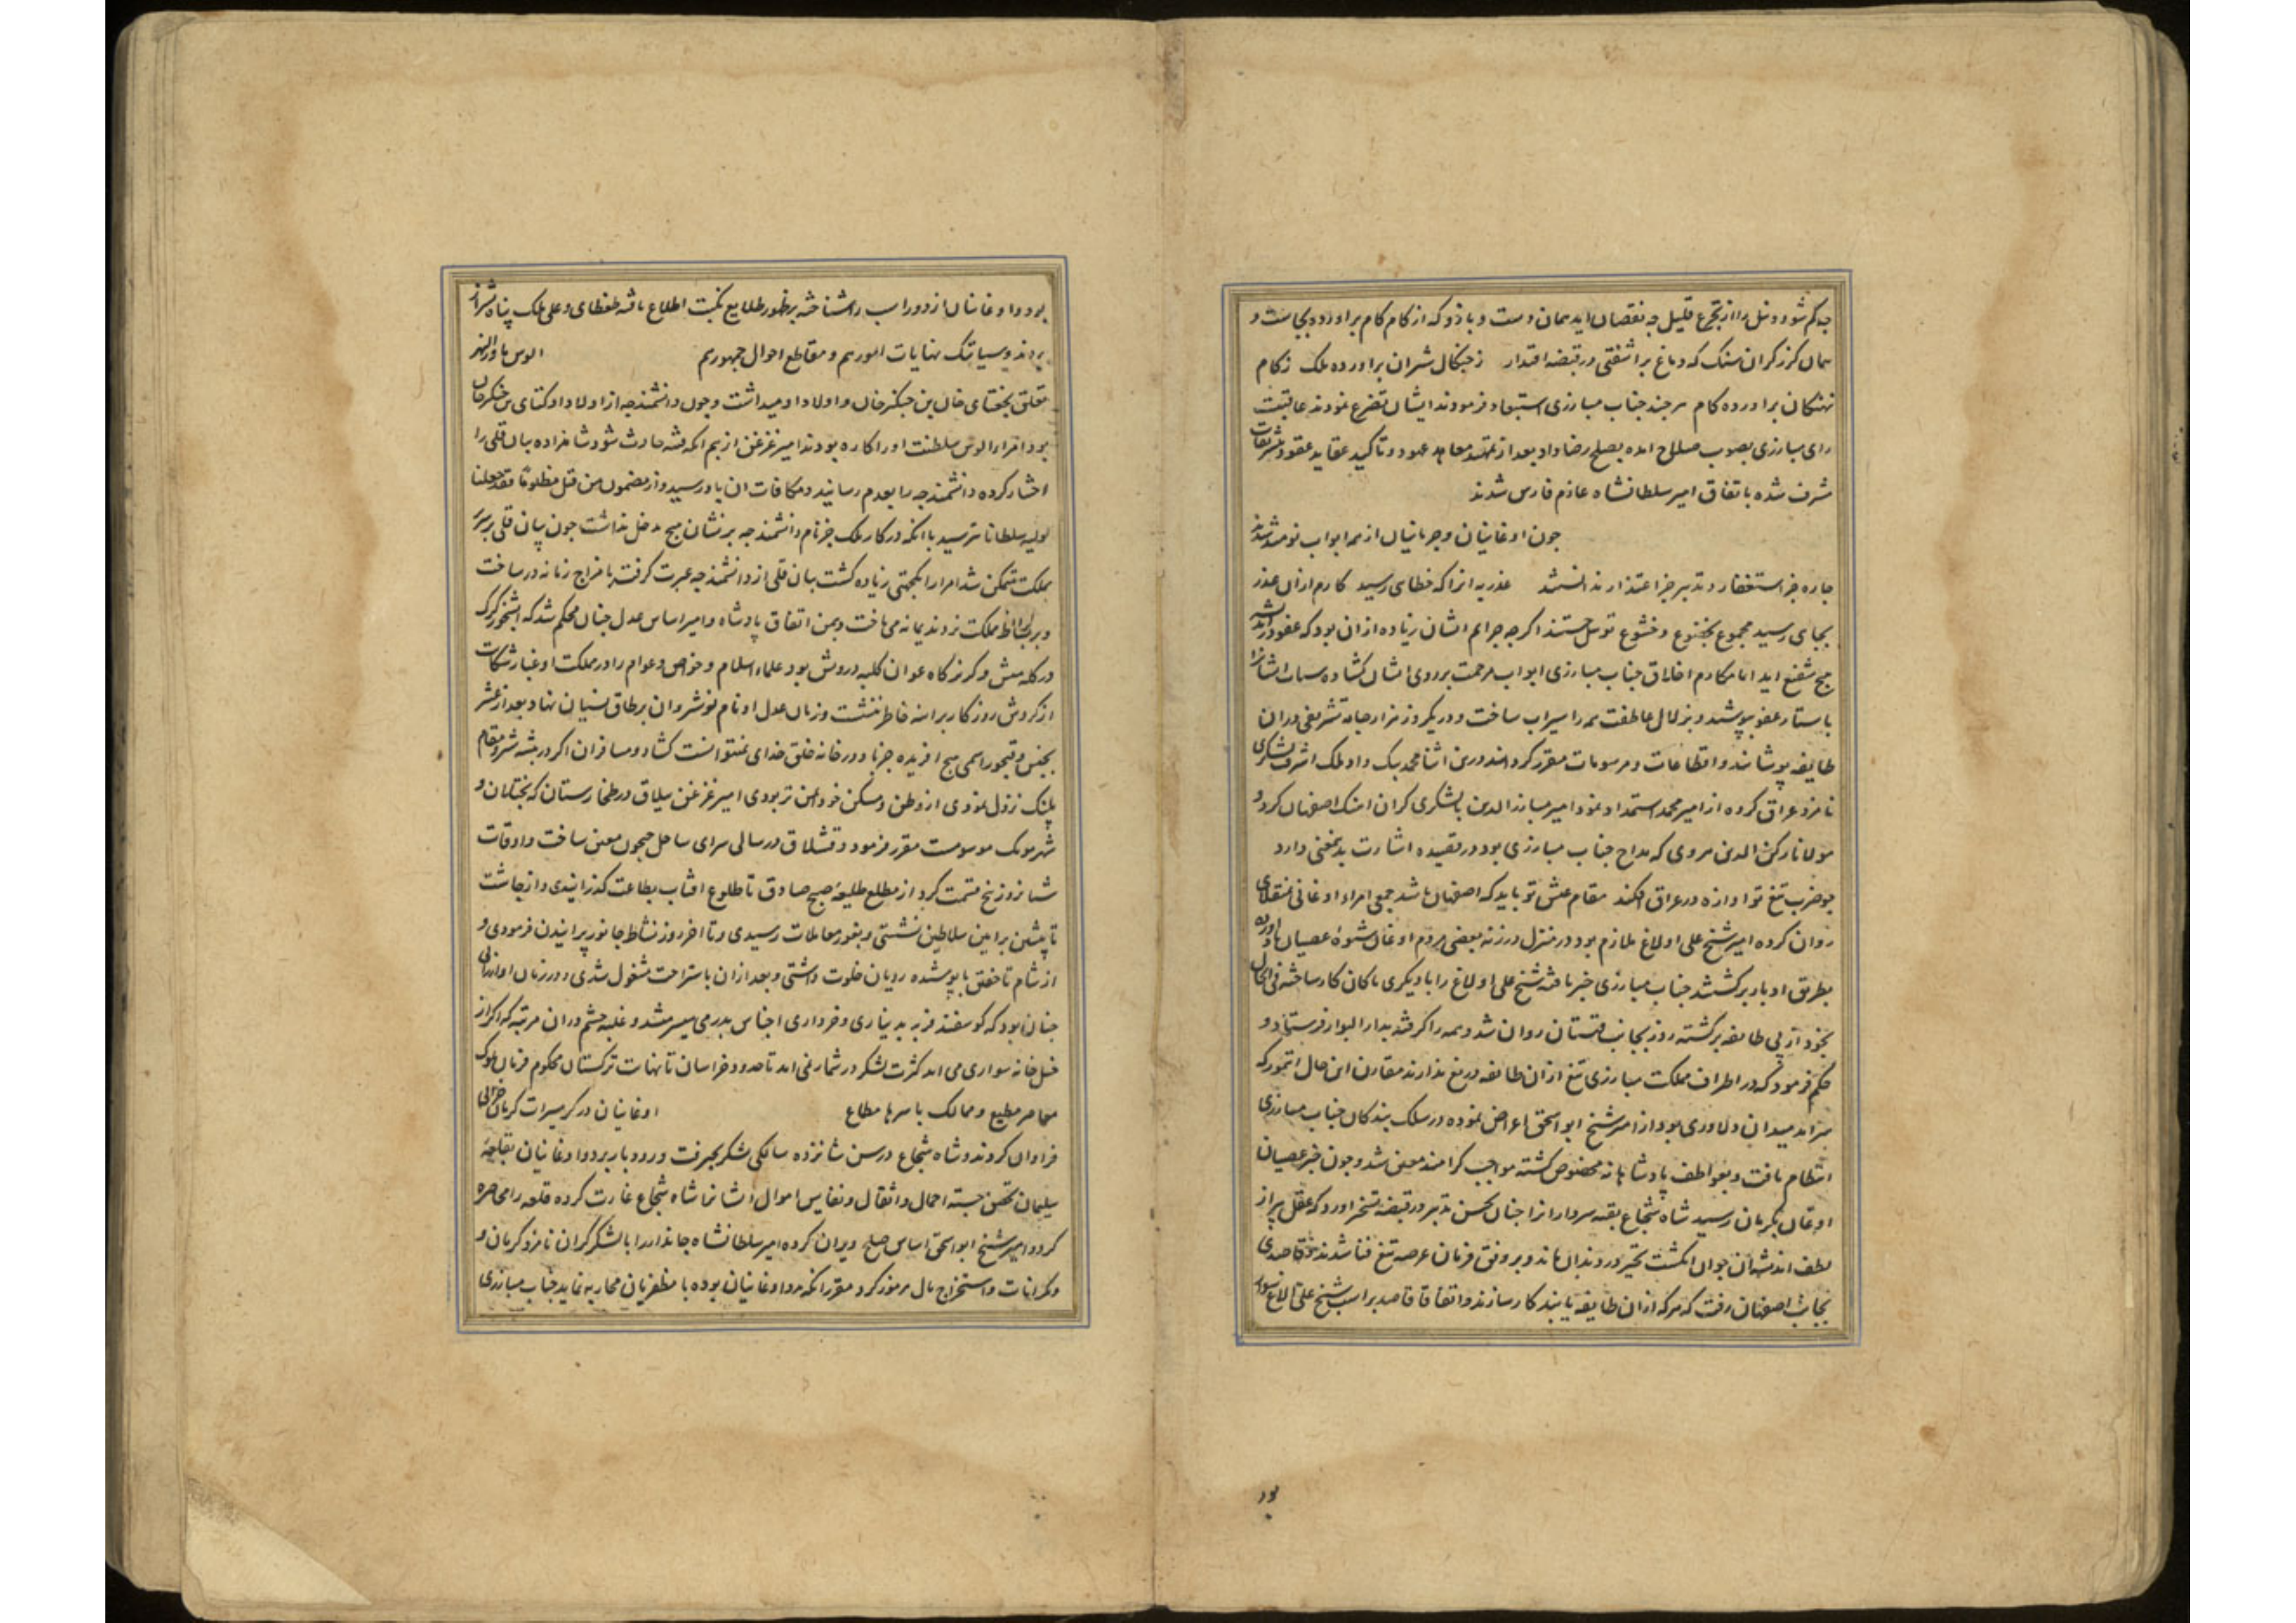 چه کم شود و نیل را از تجرع قلیل چه نقصان اید همان دست و بازو که از کام کام براورد بجاست و
همان گرز گران سنک که دماغ براشفتی در قبضه اقتدار ز چنکال شیران براورده ملک ز کام
نهنکان براورده کام هر چند جناب مبارزی استبعاد فرمودند ایشان تضرع نمودند عاقبت
رای مبارزی بصوب صلاح امده بصلح رضا داد بعد از تمهید معاهد عهود و تاکید عقاید عقود بتشریفات
مشرف شده باتفاق امیر سلطانشاه عازم فارس شدند
چون اوغانیان و جرمانیان از همه ابواب نومید شدند
چاره جز استغفار و تدبیر جز اعتذار ندانستند عذر به انرا که خطای رسید کارم از ان عذر
بجای رسید مجموع بخضوع و خشوع توسل جستند اکرچه جرایم ایشان زیاده از ان بود که عفو در
هیچ شفیع اید اما مکارم اخلاق جناب مبارزی ابواب مرحمت بر روی ایشان کشاده سیات ایشانرا
باستار عفو بپوشید و بزلال عاطفت همه را سیراب ساخت و در یکروز هزار جامه تشریفی در ان
طایفه پوشانید و اقطاعات و مرسومات مقرر کردانید در ین اثنا محمد بیک داد ملک اشرف لشکری
نامزد عراق کرده از امیر محمد استمداد نمود امیر مبارز الدین با لشکری کران اهنک اصفهان کرد و
مولانا رکن الدین هروی که مداح جناب مبارزی بود در قصیده اشارت بدینمعنی دارد
چو ضرب تیغ تو اوازه در عراق افکند مقام عیش تو باید که اصفهان باشد جمعی امراء اوغانی منقلای
روان کرده امیر شیخ علی اولاغ ملازم بود در منزل درزنه بعضی مردم اوغان شیوۀ عصیان اورده
بطریق ادبار برکشتند جناب مبارزی خبر یافته شیخ علی اولاغ را با دیکری با کان کار ساخته فی الحال
بخود از پی طایفه برکشته روز بجانب قهستان روان شد و همه را کرفته بدار البوار فرستاد و
حکم فرمود که در اطراف مملکت مبارزی تیغ از ان طایفه دریغ ندارند مقارن این حال اتیمور که
سرامد میدان دلاوری بود از امیر شیخ ابو اسحق اعراض نموده در سلک بندکان جناب مبارزی
انتظام یافت و بعواطف پادشاهانه مخصوص کشته مواجب کرامند معین شد و چون خبر عصیان
اوغان بکرمان رسید شاه شجاع بقیه سردارانرا چنان بحسن تدبیر در قبضه تسخیر اورد که عقل پیر از
لطف اندیشه ان جوان انکشت تحیر در دندان ماند و بر وفق فرمان عرصه تیغ فنا شدند و قاصدی
بجانب اصفهان رفت که هر که از ان طایفه یابند کار سازند و اتفاقا قاصد بر اسب شیخ علی اولاغ سوار
بود
بود و اوغانیان از دور اسب را شناخته بر ظهور طلایع نکبت اطلاع یافته طغطای و علی ملک پناه بشیراز
بردند و سیاتیک نهایات امورهم و مقاطع احوال جمهورهم الوس ماوراالنهر
تعلق بجغتای خان بن چنکیز خان و اولاد او میداشت و چون دانشمندجه از اولاد اوکتای بن چنکیزخان
بود امراء الوس سلطنت او را کاره بودند امیر غزغن از بیم انکه فتنه حادث شود شاهزاده بیان قلی را
اختیار کرده دانشمندجه را بعدم رسانید و مکافات ان باو رسید و از مضمون من قتل مظلوما فقد جعلنا
لولیه سلطانا نترسید با انکه در کار ملک جز نام دانشمندجه بر نشان هیچ مدخل نداشت چون بیان قلی بر سریر
مملکت متمکن شد امرا را یکجهتی زیاده کشت بیان قلی از دانشمندجه عبرت کرفته با مزاج زمانه در ساخت
و بر بساط مملکت نرد ندیمانه می باخت و بیمن اتفاق پادشاه و امیر اساس عدل چنان محکم شد که ابشخور کرک
در کله میش و کریزکاه عوان کلبه درویش بود علماء اسلام و خواص و عوام را در مملکت او غبار شکایت
از کردش روزکار بر اینه خاطر ننشست و زمان عدل او نام نوشروان بر طاق نسیان نهاد بعد از عشر
بجنس و قبجور اسمی هیچ افریده جز باد در خانه خلق خدای نمیتوانست کشاد و مسافران اکر در بیشه شیر و مقام
پلنک نزول نمودی از وطن و مسکن خود ایمن تر بودی امیر غزغن ییلاق در طخارستان که بختلان و
شهر مونک موسومست مقرر فرمود و قشلاق در سالی سرای ساحل جیحون معین ساخت و اوقات
شبانروز پنج قسمت کرد از مطلع طلیعۀ صبح صادق تا طلوع افتاب بطاعت کذرانیدی و از چاشت
تا پیشین بر ایین سلاطین نشستی و بغور معاملات رسیدی و تا اخر روز نشاط جانور پرانیدن فرمودی و
از شام تا خفتن با پوشیده رویان خلوت داشتی و بعد از ان باستراحت مشغول شدی و در زمان او ارزانی
چنان بود که کوسفند فربه بدیناری و خرواری اجناس بدرمی میسر میشد و غلبه حشم در ان مرتبه که اکر از
خیل خانه سواری می امد کثرت لشکر در شمار نمی امد تا حدود خراسان تا نهایت ترکستان محکوم فرمان ملوک
معاصر مطیع و ممالک باسرها مطاع اوغانیان در کرمسیرات کرمان خرابی
فراوان کردند و شاه شجاع در سن شانزده سالکی لشکر بجیرفت و رودبار برد و اوغانیان بقلعۀ
سلیمان تحصن جسته احمال و اثقال و نفایس اموال ایشانرا شاه شجاع غارت کرده قلعه را محاصره
کرد و امیر شیخ ابو اسحق اساس صلح ویران کرده امیر سلطانشاه جاندار را با لشکر کران نامزد کرمان و
مکرانات و استخراج مال هرموز کرد مقرر انکه مدد اوغانیان بوده با مظفریان محاربه نماید جناب مبارزی